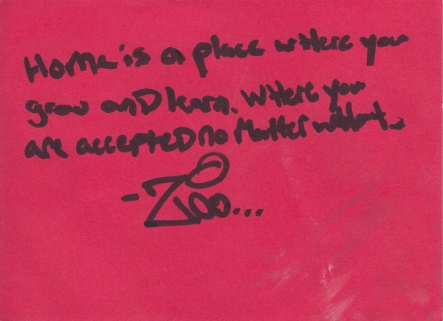 Home is a place where you
grow and learn. Where you
are accepted no matter what.